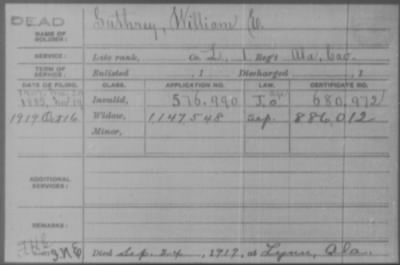 DEAD
NAME OF SOLDIER: Guthrey, William C.
SERVICE: Late rank, Co. L, 1 Reg't Ala. Cav.
TERM OF SERVICE: Enlisted , 1 Discharged , 1
DATE OF FILING. CLASS. APPLICATION NO. LAW. CERTIFICATE NO.
Invalid, 576,990 680,972
1919 Oct 16 Widow, 1147,548 886,012
Minor,
ADDITIONAL SERVICES:
REMARKS:
Died Sep. 24, 1919, at Lynn, Ala.